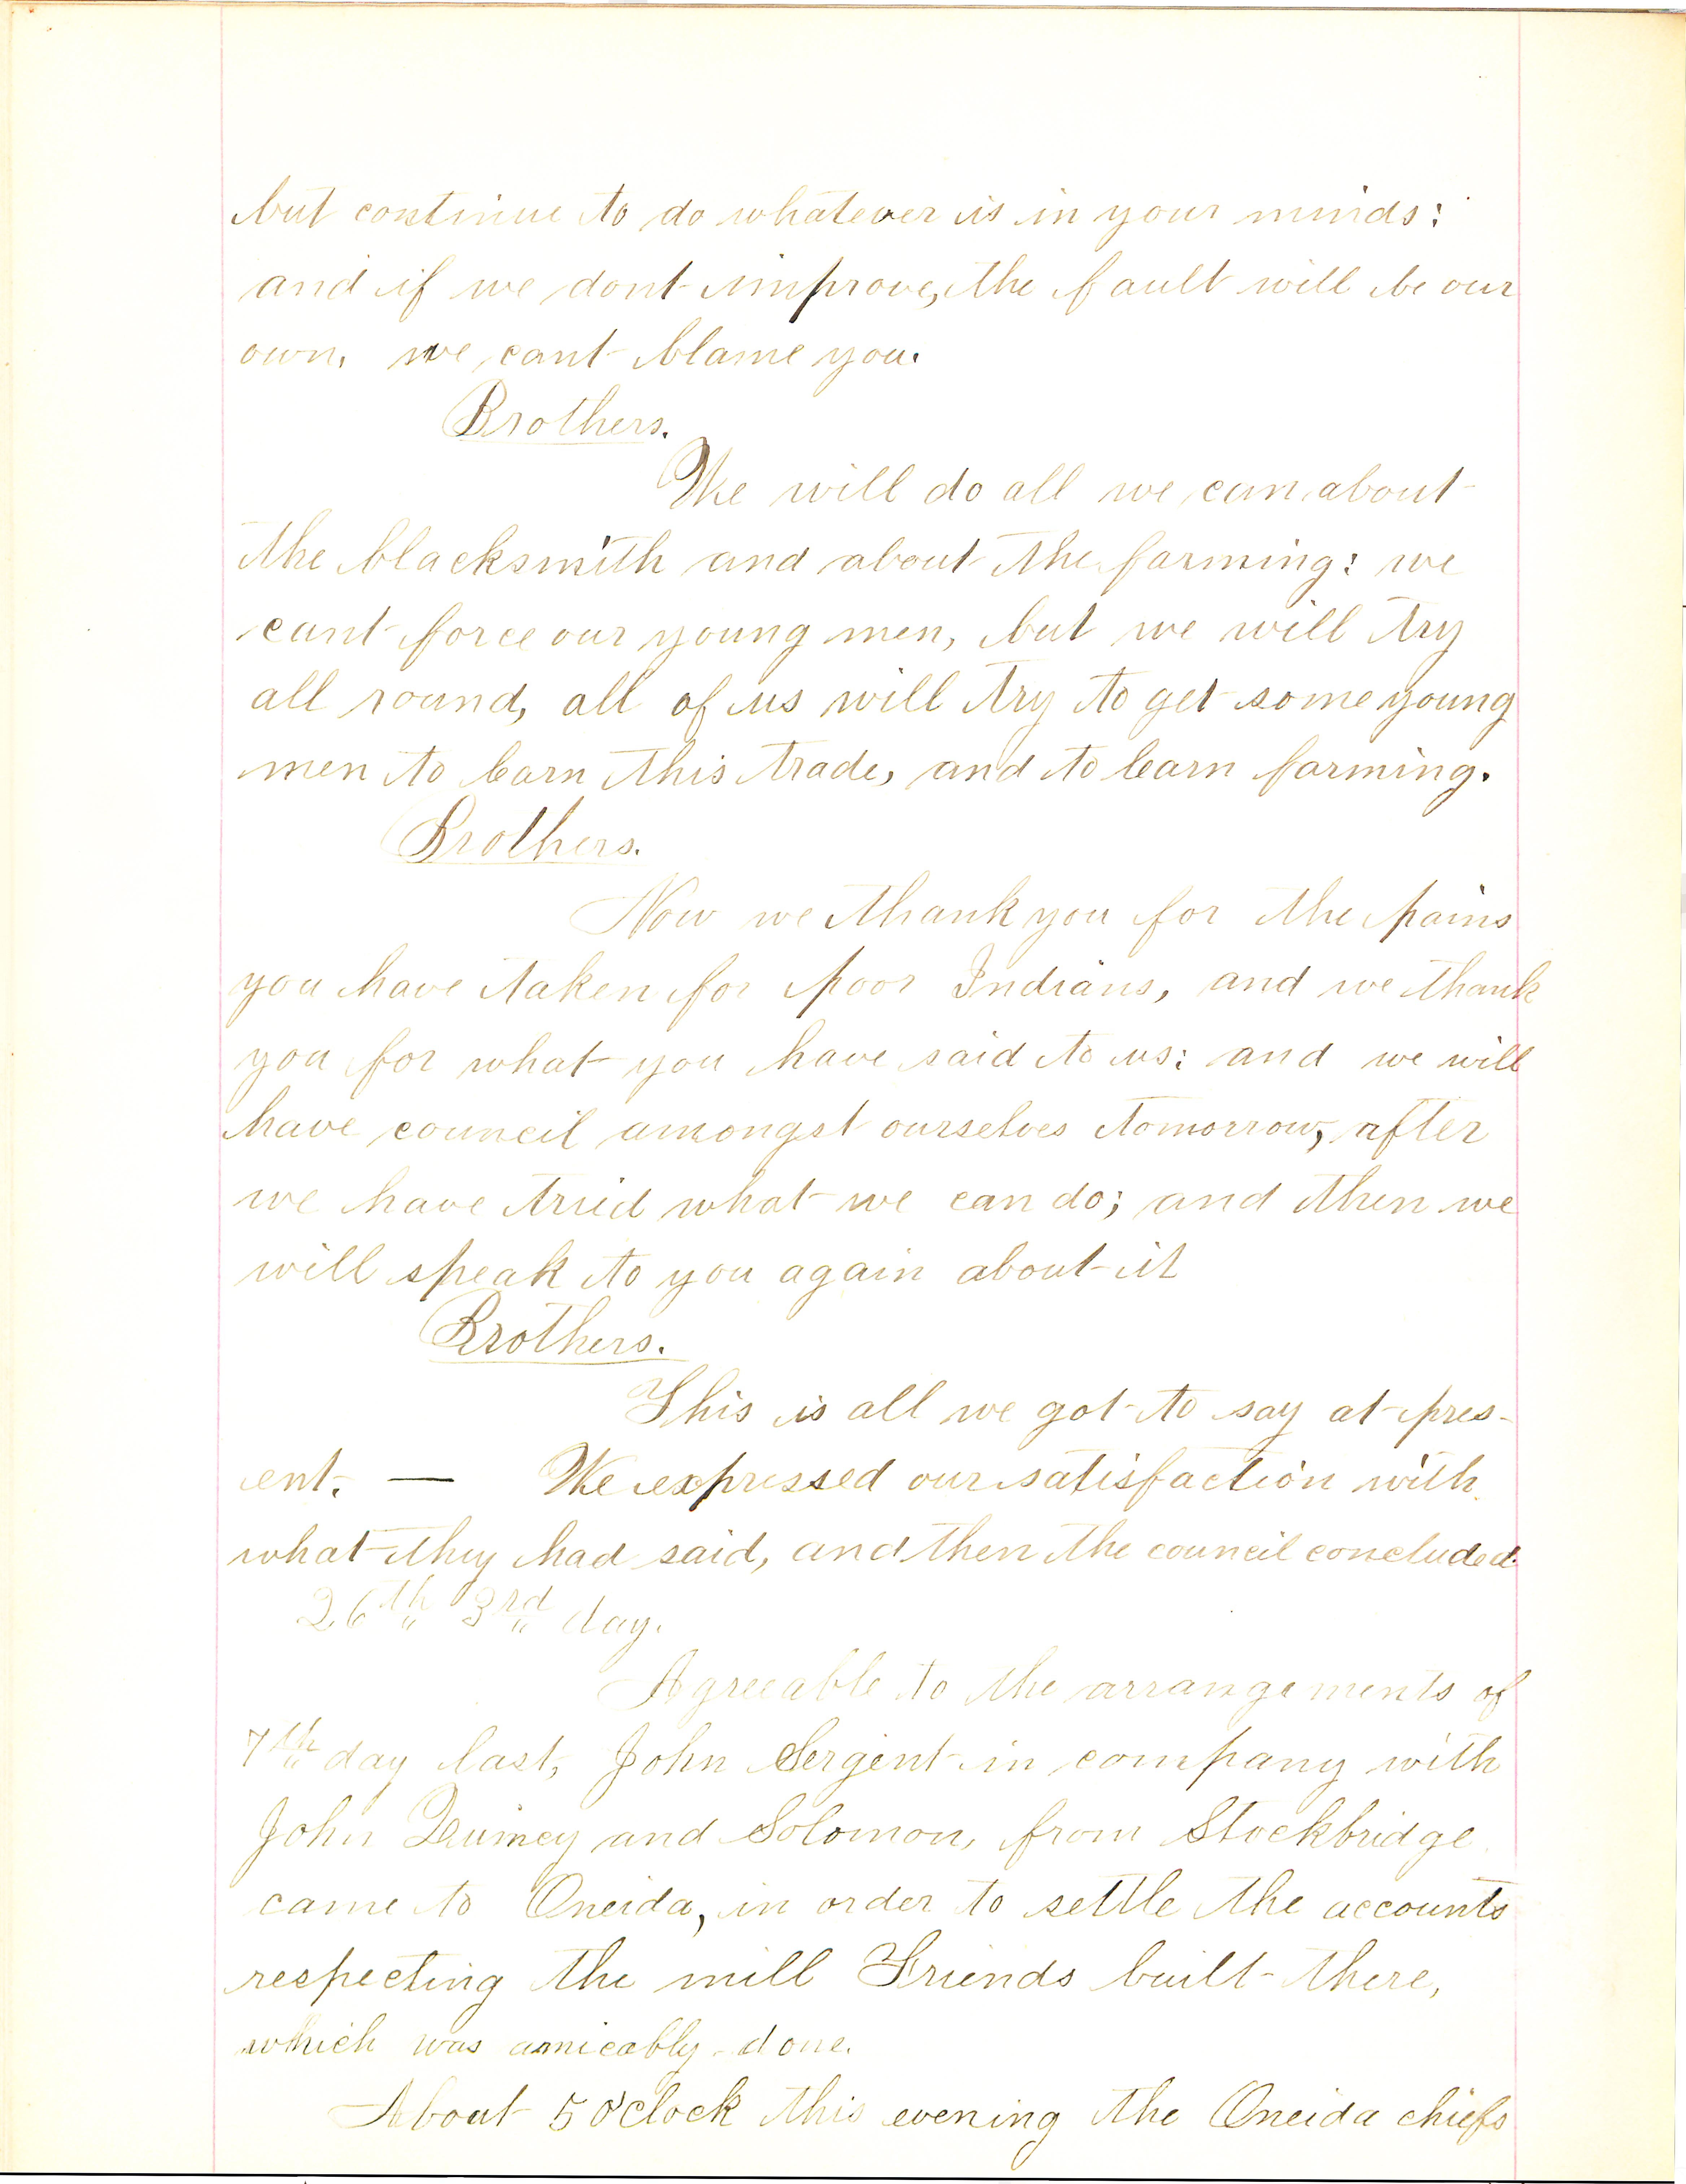 but continue to do whatever is in your minds:
and if we dont improve, the fault will be our
own. we cant blame you.
Brothers.
We will do all we can about
the blacksmith and about the farming: we
cant force our young men, but we will try
all round, all of us will try to get some young
men to learn this trade, and to learn farming.
Brothers.
Now we thank you for the pains
you have taken for poor Indians, and we thank
you for what you have said to us: and we will
have council amongst ourselves tomorrow, after
we have tried what we can do; and then we
will speak to you again about it
Brothers.
This is all we got to say at pres-
ent. — We expressed our satisfaction with
what they had said, and then the council concluded.
26th 3rd day.
Agreeable to the arrangements of
7th day last, John Sergent in company with
John Quiney and Solomon, from Stockbridge
came to Oneida, in order to settle the accounts
respecting the mill Friends built there,
which was amicably done.
About 5 o'clock this evening the Oneida chiefs